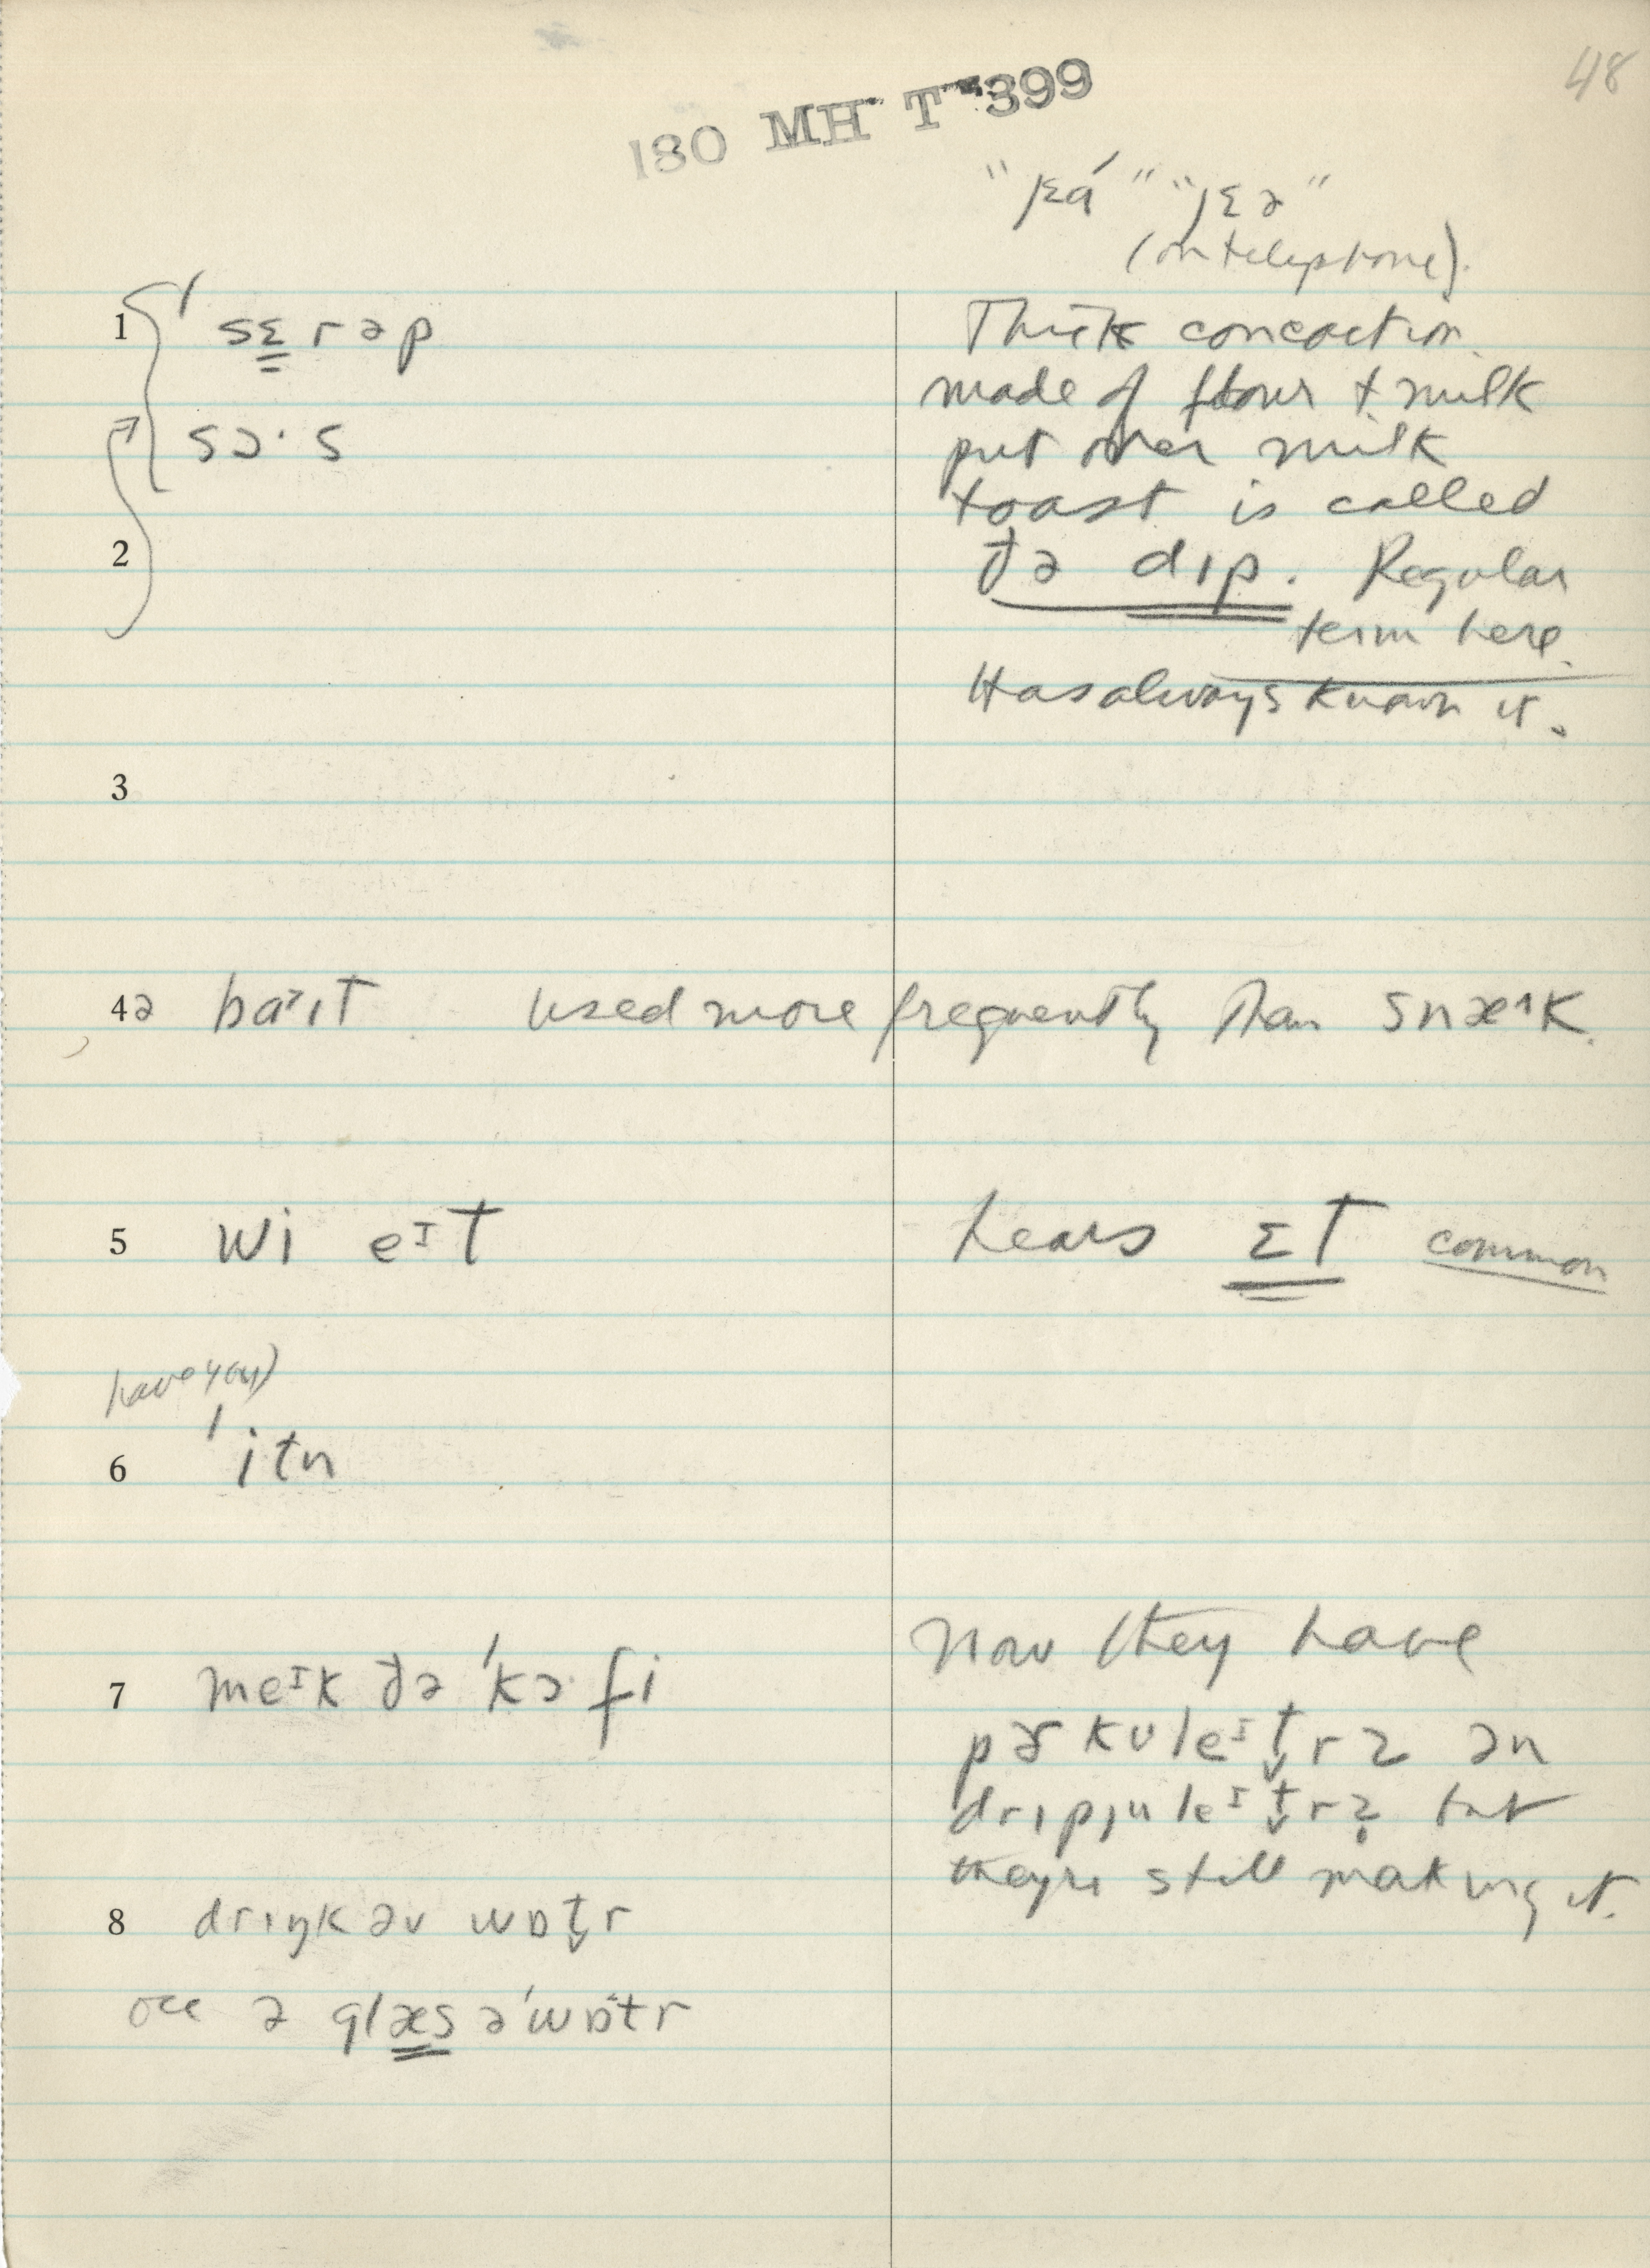 48
180 MH T 399
"jɛá" "jɛə"
(on telephone).
1 ˈsɛrəp
Thick concoction
made of flour + milk
sɔ·s
put over milk
toast is called
2
ðə dɪp. Regular
term here.
Has always known it.
3
4a baˑɪt used more frequently than snæ^k.
5 wi eᴵt hears ɛt common
have you)
6 ˈitn
Now they have
7 meᴵk ðə ˈkɔfi
pɚkuleᴵt̬rz ən
drɪpjuleᴵt̬rz but
they're still making it.
8 drɪŋk əv wɒt̬r
occ ə glæs əˈwɒt̬r